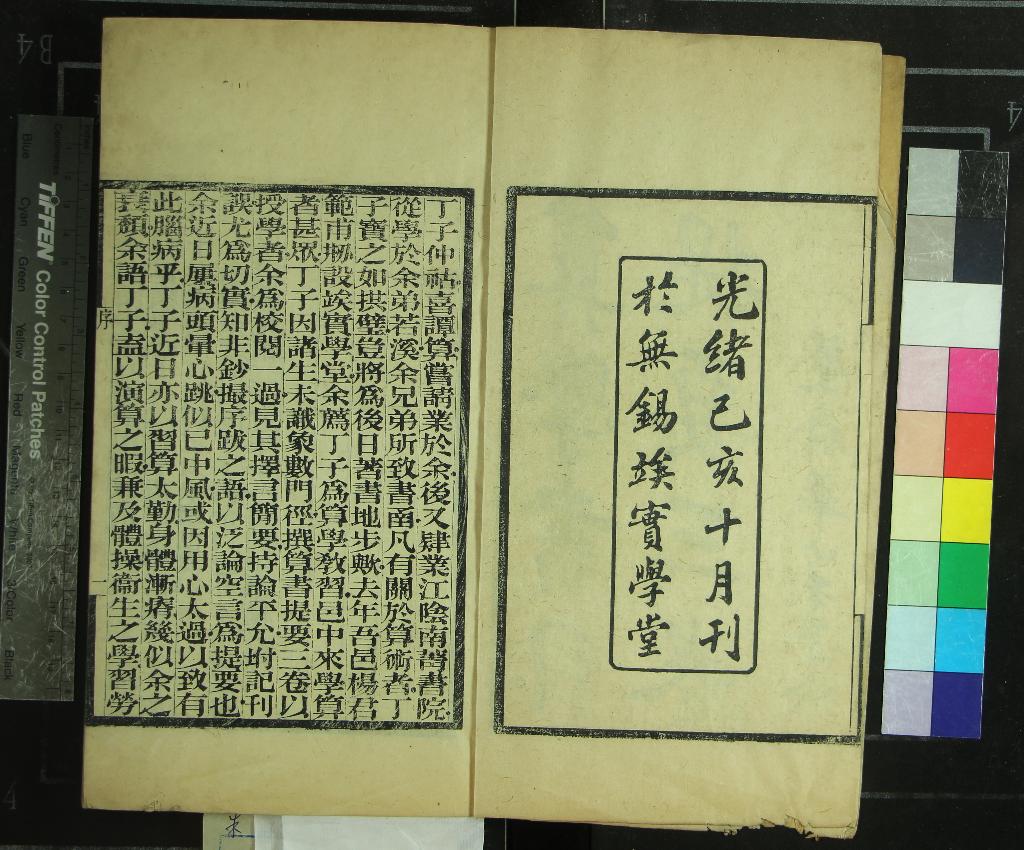 光緒己亥十月刊
於無錫竢實學堂
丁子仲祜喜譚算嘗講業於余後又肄業江陰南菁書院
從學於余弟若溪余兄弟所致書函凡有關於算術者丁
子寶之如拱璧豈將爲後日著書地步歟去年吾邑楊君
範甫剏設竢實學堂余薦丁子爲算學教習邑中來學算
者甚眾丁子因諸生未識象數門徑撰算書提要二卷以
授學者余爲校閱一過見其擇言簡要持論平允坿記刊
誤尤爲切實知非鈔撮序跋之語以泛論空言爲提要也
余近日屢病頭暈心跳似已中風或因用心太過以致有
此腦病乎丁子近日亦以習算太勤身體漸瘠幾似余之
類余語丁子盍以演算之暇兼及體操衞生之學習勞
序
一
TIFFEN Color Control Patches
Blue
Cyan
Green
Yellow
Red
Magenta
White
3/Color
Black
Centimetres
B4
4
4